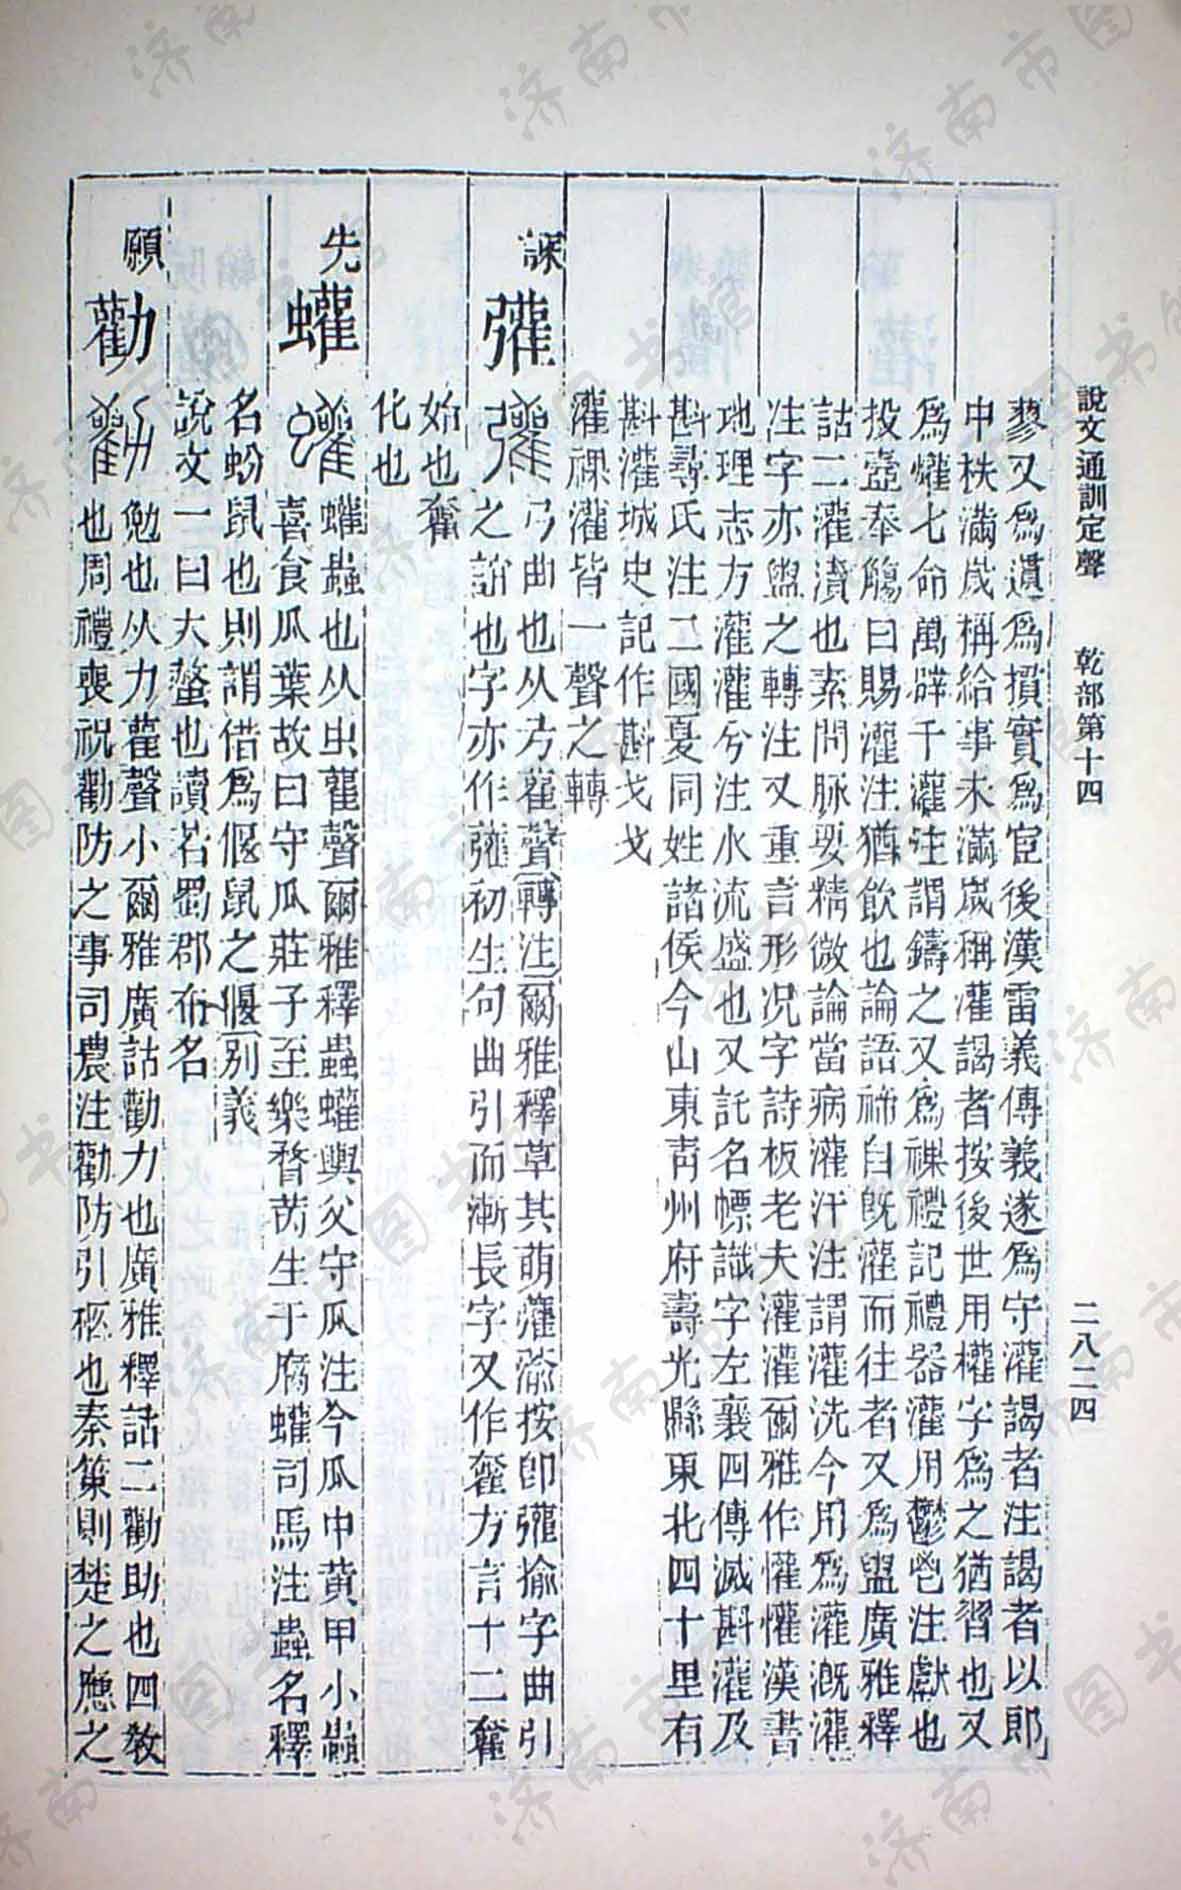 說文通訓定聲　乾部第十四　二八二四
蓼又爲遺爲擯實爲宦後漢雷義傳義遂爲守灌謁者注謁者以郎
中秩滿歲稱給事未滿歲稱灌謁者按後世用權字爲之猶習也又
爲爟七命萬辟千灌注謂鑄之又爲祼禮記禮器灌用鬱鬯注獻也
投壺奉觴曰賜灌注猶飲也論語禘自旣灌而往者又爲盥廣雅釋
詁二灌漬也素問脈要精微論當病灌汗注謂灌洗今用爲灌漑灌
注字亦盥之轉注又重言形况字詩板老夫灌灌爾雅作懽懽漢書
地理志方灌灌兮注水流盛也又託名幖識字左襄四傳滅斟灌及
斟尋氏注二國夏同姓諸侯今山東靑州府壽光縣東北四十里有
斟灌城史記作斟戈戈
灌祼灌皆一聲之轉
諜
彏 弓曲也从弓雚聲轉注爾雅釋草其萌虇蕍按卽彏揄字曲引
之誼也字亦作虇初生句曲引而漸長字又作䉛方言十二䉛
始也䉛
化也
先
蠸 蠸蟲也从虫雚聲爾雅釋蟲蠸輿父守瓜注今瓜中黃甲小蟲
喜食瓜葉故曰守瓜莊子至樂瞀芮生于腐蠸司馬注蟲名釋
名蚡鼠也則謂借爲偃鼠之偃別義
說文一曰大螫也讀若蜀郡布名
願
勸 勉也从力雚聲小爾雅廣詁勸力也廣雅釋詁二勸助也四敎
也周禮喪祝勸防之事司農注勸防引柩也秦策則楚之應之